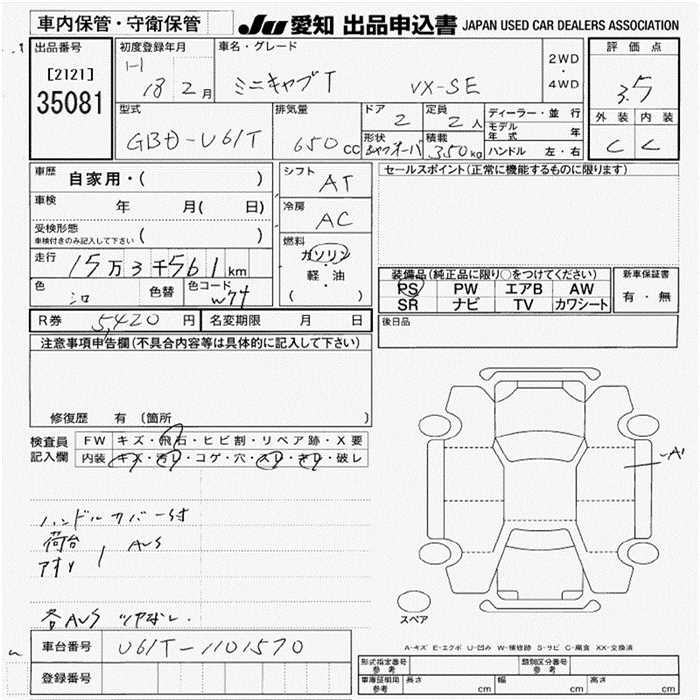 車内保管・守衛保管 JU 愛知 出品申込書 JAPAN USED CAR DEALERS ASSOCIATION
出品番号 初度登録年月 車名・グレード 2WD・4WD 評価点
[2121] 35081 18 2月 ミニキャブT VX-SE 3.5
型式 排気量 ドア 定員 ディーラー・並行 外装 内装
GBD-U61T 650 cc 2 2人 モデル年式 年
形状 積載 350kg ハンドル 左・右 C C
車歴 自家用・( ) シフト AT セールスポイント(正常に機能するものに限ります)
車検 年 月( 日) 冷房 AC
受検形態 車検付きのみ記入して下さい ( )
燃料 ガソリン・軽・油 ( )
走行 15万3千561km
装備品(純正品に限り○をつけてください) 新車保証書
色 シロ 色替 色コード W74 PS PW エアB AW 有・無
SR ナビ TV カワシート
R券 5,420円 名変期限 月 日 後日品
注意事項申告欄(不具合内容等は具体的に記入して下さい)
修復歴 有(箇所
検査員記入欄 FW キズ・飛石・ヒビ割・リペア跡・X要
内装 キズ・汚レ・コゲ・穴・スレ・キレ・破レ
A1
ハンドルカバー付
荷台
各AUS ツヤなし.
スペア
A-キズ E-エクボ U-凹み W-補修跡 S-サビ C-腐食 XX-交換済
車台番号 U61T-1101570
登録番号
形式指定番号 参考 類別区分番号 参考
車庫証明用 参考 長さ cm 幅 cm 高さ cm